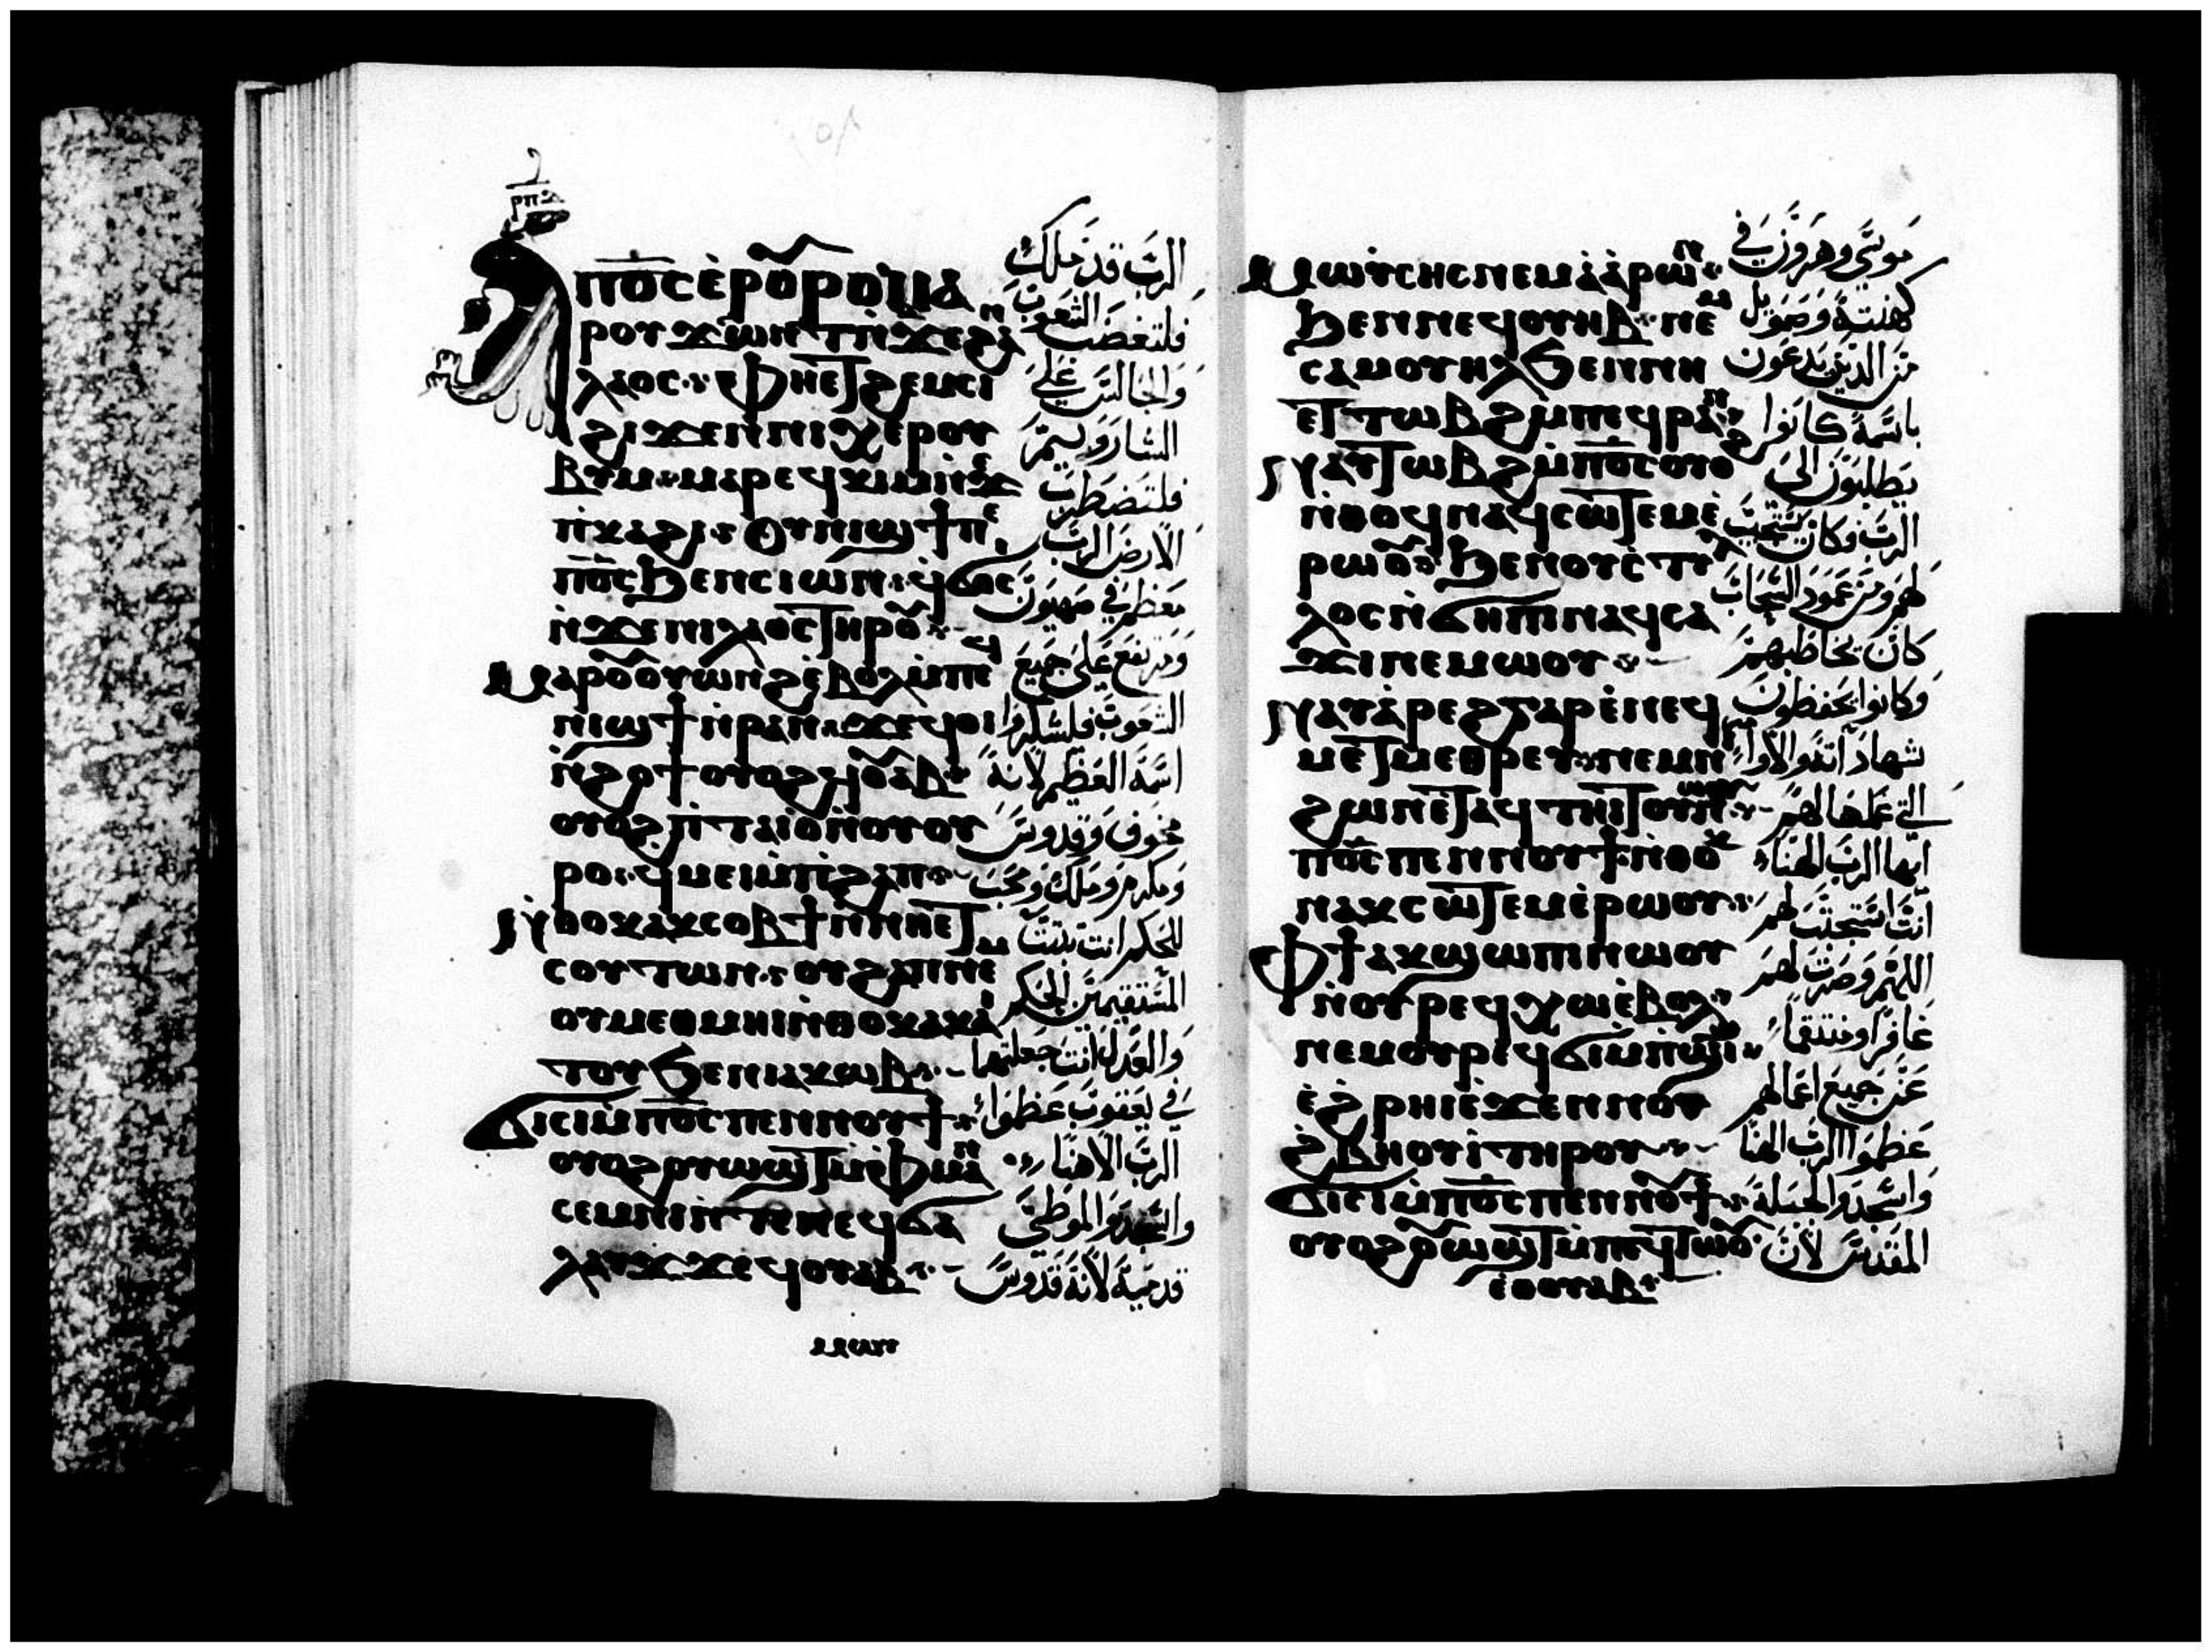 ⲁ̀ⲡⲟ̅ⲥ̅ⲉ̀ⲣⲟⲩⲣⲟⲙⲁ
ⲣⲟⲩϫⲱⲛⲧⲛ̀ϫⲉϩⲁⲛ
ⲗⲁⲟⲥ ⲫⲏⲉⲧϩⲉⲙⲥⲓ
ϩⲓϫⲉⲛⲛⲓⲭⲉⲣⲟⲩ
ⲃⲓⲙ ⲙⲁⲣⲉϥⲕⲓⲙⲛ̀ϫⲉ
ⲡ̀ⲕⲁϩⲓ ⲟⲩⲛⲓϣϯⲡⲉ
ⲡⲟ̅ⲥ̅ϧⲉⲛⲥⲓⲱⲛ ϥ̀ϭⲟⲥⲉ
ⲛ̀ϫⲉⲛⲓⲗⲁⲟⲥⲧⲏⲣⲟⲩ
ⲙⲁⲣⲟⲩⲟⲩⲱⲛϩⲉ̀ⲃⲟⲗⲙ̀ⲡⲉϥ
ⲛⲓϣϯⲛ̀ⲣⲁⲛ ϫⲉϥⲟⲓ
ⲛ̀ϩⲟϯⲟⲩⲟϩϥ̀ⲟⲩⲁⲃ
ⲟⲩⲟϩⲡ̀ⲧⲁⲓⲟ̀ⲛ̀ⲟⲩⲟⲩ
ⲣⲟ ϥⲙⲉⲓⲙ̀ⲡ̀ϩⲁⲡ
ⲛ̀ⲑⲟⲕⲁⲕⲥⲟⲃϯⲛ̀ⲛⲏⲉⲧ
ⲥⲟⲩⲧⲱⲛ ⲟⲩϩⲁⲡⲛⲉⲙ
ⲟⲩⲙⲉⲑⲙⲏⲓⲛ̀ⲑⲟⲕⲁⲕⲁⲓ
ⲧⲟⲩϧⲉⲛⲓⲁⲕⲱⲃ
ϭⲓⲥⲓⲙ̀ⲡⲟ̅ⲥ̅ⲡⲉⲛⲛⲟⲩϯ
ⲟⲩⲟϩⲟⲩⲱϣⲧⲙ̀ⲫⲙⲁⲛ
ⲥⲉⲙⲛⲓⲛ̀ⲧⲉⲛⲉϥϭⲁ
ⲗⲁⲩϫ ϫⲉϥⲟⲩⲁⲃ
الرب قد ملك
فلتغضب الشعوب
والجالس على
الشاروبيم
فلتضطرب
الارض الرب
معظم في صهيون
ومرتفع على جميع
الشعوب فليشكروا
اسمه العظيم لانه
مخوف وقدوس
ومكرم وملك ومحب
للحكم انت ثبتت
المستقيمين الحكم
والعدل انت جعلتهما
في يعقوب عظموا
الرب الاهنا
واسجدوا لموطئ
قدميه لانه قدوس
ⲙⲱⲩ
ⲙⲱⲩⲥⲏⲥⲛⲉⲙⲁ̀ⲁ̀ⲣⲱⲛ
ϧⲉⲛⲛⲉϥⲟⲩⲏⲃ ⲛⲉⲙ
ⲥⲁⲙⲟⲩⲏⲗϧⲉⲛⲛⲏ
ⲉⲧⲧⲱⲃϩⲙ̀ⲡⲉϥⲣⲁⲛ
ⲛⲁⲩⲧⲱⲃϩⲙ̀ⲡⲟ̅ⲥ̅ⲟⲩⲟϩ
ⲛ̀ⲑⲟϥⲛⲁϥⲥⲱⲧⲉⲙⲉ̀
ⲣⲱⲟⲩ ϧⲉⲛⲟⲩⲥ̀ⲧⲩⲗ
ⲗⲟⲥⲛ̀ϭⲏⲡⲓⲛⲁϥⲥⲁ
ϫⲓⲛⲉⲙⲱⲟⲩ
ⲛⲁⲩⲁ̀ⲣⲉϩⲅⲁⲣⲉ̀ⲛⲉϥ
ⲙⲉⲧⲙⲉⲑⲣⲉⲩ ⲛⲉⲙⲛⲓ
ϩⲱⲛⲉ̀ⲧⲁϥⲧⲏⲓⲧⲟⲩⲛⲱⲟⲩ
ⲡⲟ̅ⲥ̅ⲡⲉⲛⲛⲟⲩϯⲛ̀ⲑⲟⲕ
ⲛⲁⲕⲥⲱⲧⲉⲙⲉ̀ⲣⲱⲟⲩ
ⲫϯⲁⲕϣⲱⲡⲓⲛⲱⲟⲩ
ⲛ̀ⲟⲩⲣⲉϥⲭⲱⲉ̀ⲃⲟⲗ
ⲛⲉⲙⲟⲩⲣⲉϥϭⲓⲙ̀ⲡϣⲓϣ
ⲉ̀ϩⲣⲏⲓⲉ̀ϫⲉⲛⲛⲟⲩ
ϩ̀ⲃⲏⲟⲩⲓ̀ⲧⲏⲣⲟⲩ
ϭⲓⲥⲓⲙ̀ⲡⲟ̅ⲥ̅ⲡⲉⲛⲛⲟⲩϯ
ⲟⲩⲟϩⲟⲩⲱϣⲧⲙ̀ⲡⲉϥⲧⲱⲟⲩ
ⲉⲑⲟⲩⲁⲃ
موسى وهرون في
كهنته وصمويل
من الذين يدعون
باسمه كانوا
يطلبون الى
الرب وكان يستجيب
لهم ومن عمود السحاب
كان يخاطبهم
وكانوا يحفظون
شهاداته والاوامر
التي عملها لهم
ايها الرب الهنا
انت استجبت لهم
اللهم وصرت لهم
غافرا ومنتقما
عن جميع اعمالهم
عظموا الرب الهنا
واسجدوا لجبله
المقدس لان